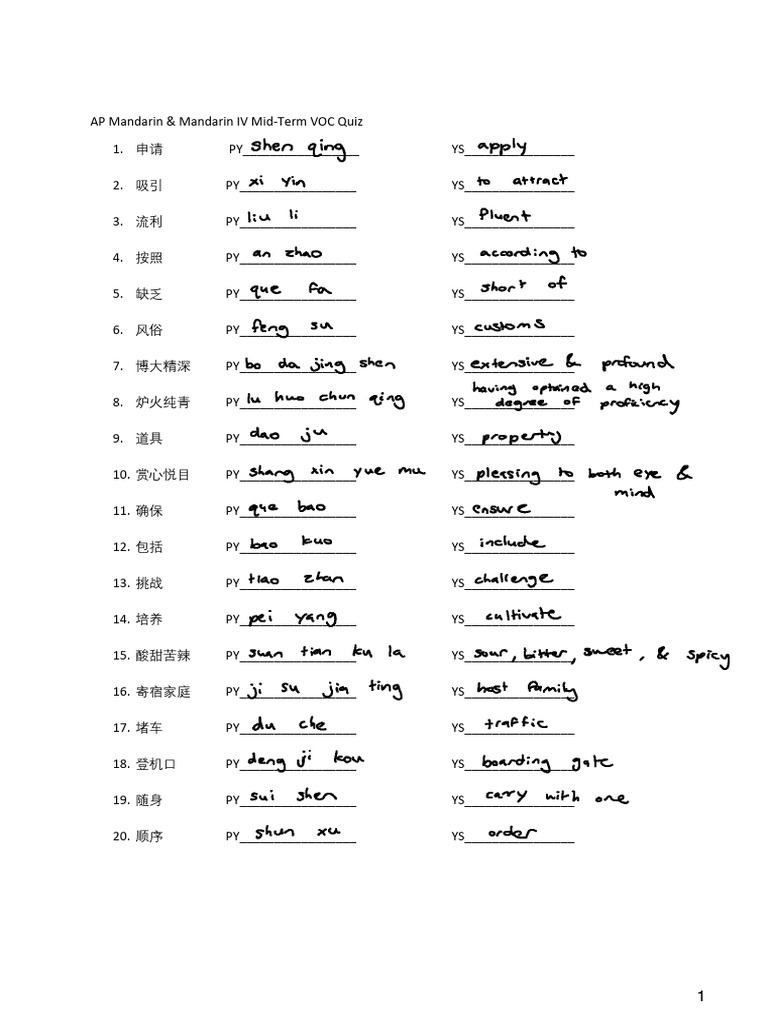 AP Mandarin & Mandarin IV Mid-Term VOC Quiz
1. 申请 PY shen qing YS apply
2. 吸引 PY xi yin YS to attract
3. 流利 PY liu li YS fluent
4. 按照 PY an zhao YS according to
5. 缺乏 PY que fa YS short of
6. 风俗 PY feng su YS customs
7. 博大精深 PY bo da jing shen YS extensive & profound
8. 炉火纯青 PY lu huo chun qing YS having optained a high
degree of proficiency
9. 道具 PY dao ju YS property
10. 赏心悦目 PY shang xin yue mu YS pleasing to both eye &
mind
11. 确保 PY que bao YS ensure
12. 包括 PY bao kuo YS include
13. 挑战 PY tiao zhan YS challenge
14. 培养 PY pei yang YS cultivate
15. 酸甜苦辣 PY suan tian ku la YS sour, bitter, sweet, & spicy
16. 寄宿家庭 PY ji su jia ting YS host family
17. 堵车 PY du che YS traffic
18. 登机口 PY deng ji kou YS boarding gate
19. 随身 PY sui shen YS carry with one
20. 顺序 PY shun xu YS order
1